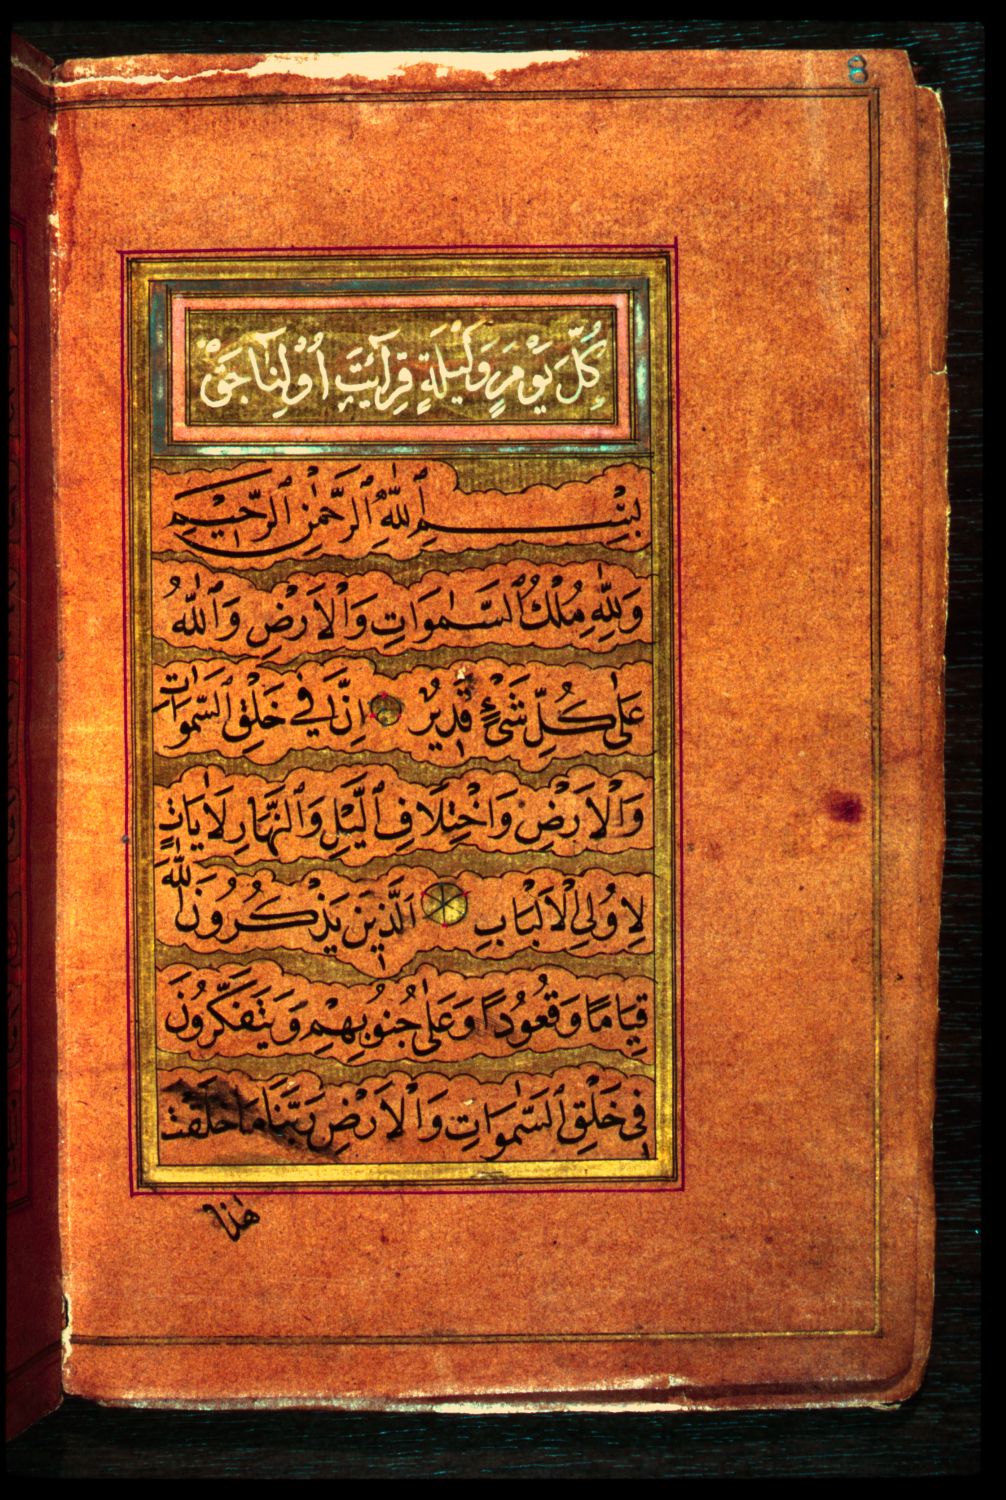 8
كُلِّ يَوْمٍ وَلَيْلَةٍ قِرَآئَتْ اُوْلِنَا جَقْ
بِسْمِ ٱللّٰهِ ٱلرَّحْمٰنِ ٱلرَّحِيْمِ
وَلِلّٰهِ مُلْكُ ٱلسَّمٰوَاتِ وَٱلْاَرْضِ وَٱللّٰهُ
عَلٰى كُلِّ شَىْءٍ قَدِيرٌ اِنَّ فٖى خَلْقِ ٱلسَّمٰوَاتِ
وَٱلْاَرْضِ وَاخْتِلَافِ ٱلَّيْلِ وَٱلنَّهَارِ لَاٰيَاتٍ
لِاُولِى ٱلْاَلْبَابِ اَلَّذِينَ يَذْكُرُونَ ٱللّٰهَ
قِيَامًا وَقُعُودًا وَعَلٰى جُنُوبِهِمْ وَيَتَفَكَّرُونَ
فِى خَلْقِ ٱلسَّمٰوَاتِ وَٱلْاَرْضِ رَبَّنَا مَا خَلَقْتَ
هٰذَا